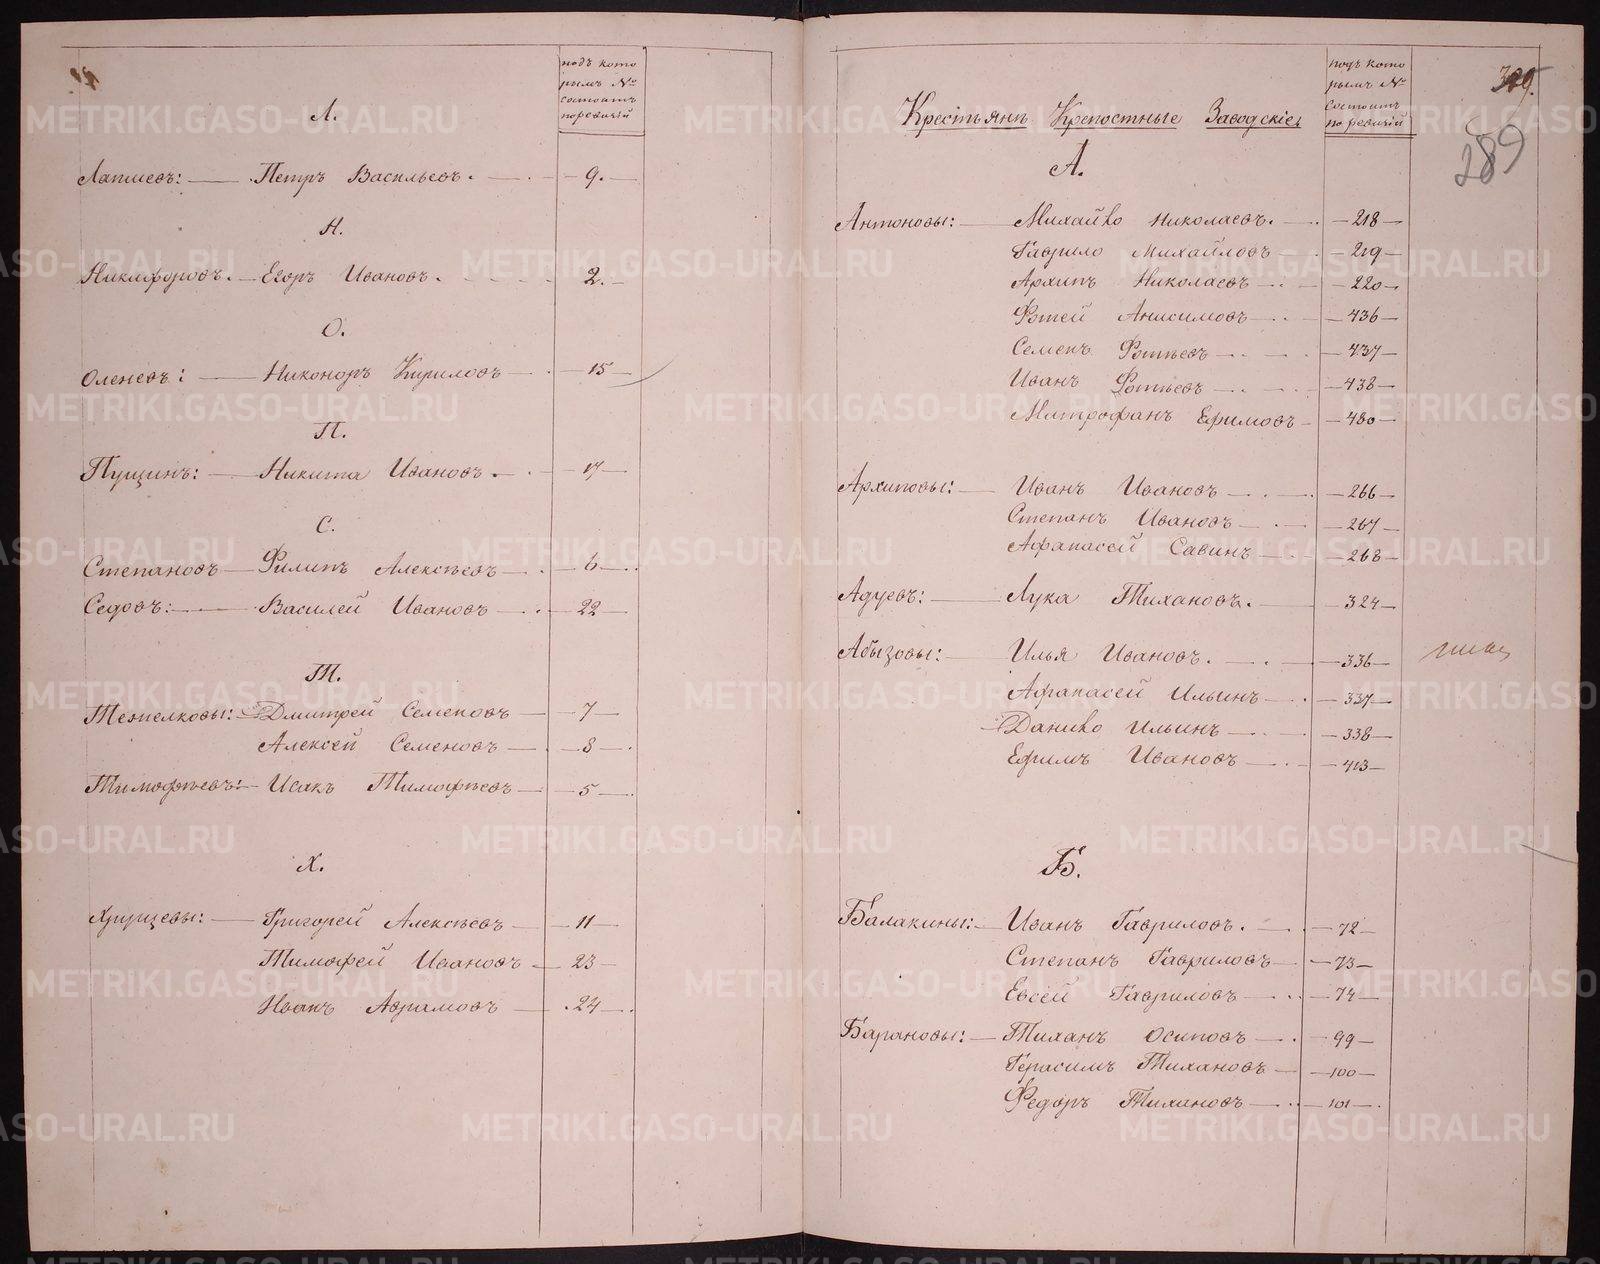 подъ кото
рымъ №
состоитъ
по ревизіи
Л.
Лаптевъ: Петръ Васильевъ. 9.
Н.
Никифоровъ. Егоръ Ивановъ. 2.
О.
Оленевъ: Никоноръ Кириловъ 15
П.
Пущинъ: Никита Ивановъ. 17
С.
Степановъ Филипъ Алексѣевъ 6
Седовъ: Василей Ивановъ 22
Т.
Дмитрей Семеновъ 7
Алексей Семеновъ 8
Тимофѣевъ: Исакъ Тимофѣевъ 5
Х.
Хрущевы: Григорей Алексѣевъ 11
Тимофей Ивановъ 23
Иванъ Аврамовъ 24
подъ кото
рымъ №
состоитъ
по ревизіи
289
Крестьянъ Крепостные Заводскіе
А.
Антоновы: Михайло Николаевъ. 218
Гаврило Михайловъ 219
Архипъ Николаевъ 220
Фотей Анисимовъ 436
Семенъ Фотѣевъ 437
Иванъ Фотѣевъ 438
Митрофанъ Ефимовъ 480
Архиповы: Иванъ Ивановъ 266
Степанъ Ивановъ 267
Афанасей Савинъ 268
Адуевъ: Лука Тихановъ. 324
Абызовы: Илья Ивановъ. 336
Афанасей Ильинъ 337
Данило Ильинъ 338
Ефимъ Ивановъ 413
Б.
Балакины: Иванъ Гавриловъ. 72
Степанъ Гавриловъ 73
Евсей Гавриловъ 74
Барановы: Тиханъ Осиповъ 99
Герасимъ Тихановъ 100
Федоръ Тихановъ 101
METRIKI.GASO-URAL.RU